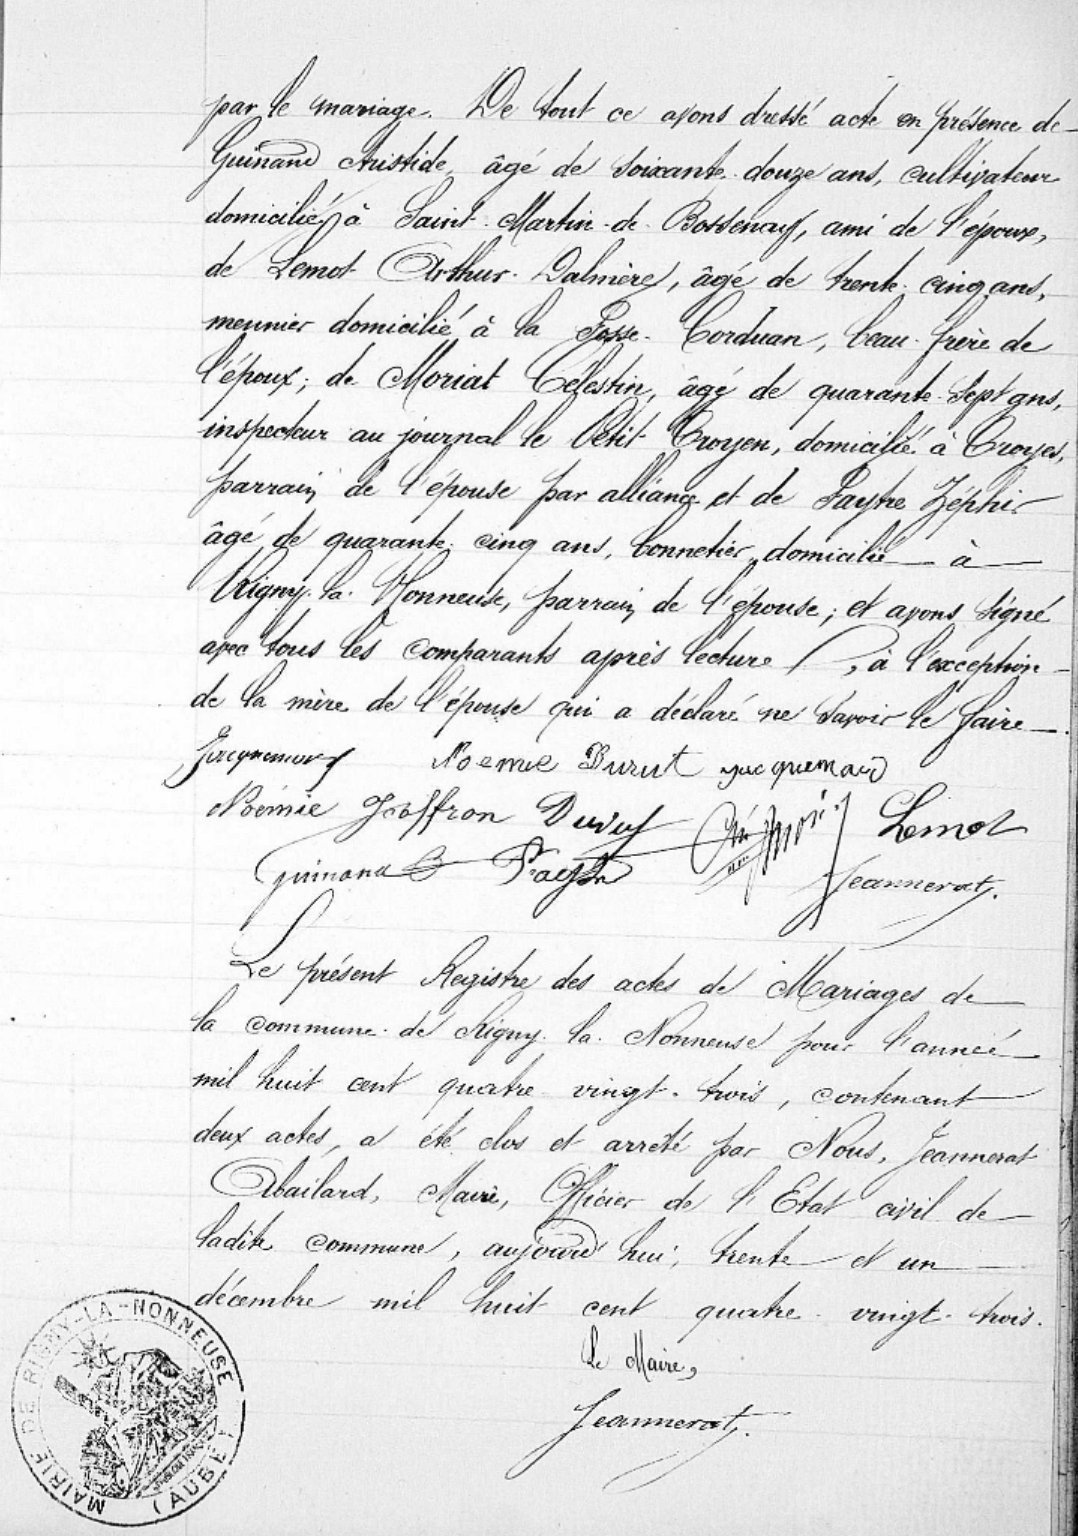 par le mariage. De tout ce avons dressé acte en présence de
Guinand Aristide, âgé de soixante-douze ans, cultivateur
domicilié à Saint-Martin-de-Bossenay, ami de l'époux,
de Lemot Arthur Dalmère, âgé de trente-cinq ans,
meunier domicilié à la Fosse-Corduan, beau-frère de
l'époux; de Moriat Célestin, âgé de quarante-sept ans,
inspecteur au journal le Petit Troyen, domicilié à Troyes,
parrain de l'épouse par alliance et de Paytre Zéphir
âgé de quarante-cinq ans, bonnetier domicilié à
Rigny-la-Nonneuse, parrain de l'épouse; et avons signé
avec tous les comparants après lecture, à l'exception
de la mère de l'épouse qui a déclaré ne savoir le faire.
Jacquemard Noemie Durut Jacquemard
Noémie Joffron Durut Lemot
Guinand Jeannerat.
Le présent Registre des actes de Mariages de
la commune de Rigny-la-Nonneuse pour l'année
mil huit cent quatre-vingt-trois, contenant
deux actes, a été clos et arrêté par Nous, Jeannerat
Abailard, Maire, Officier de l'Etat civil de
ladite commune, aujourd'hui, trente et un
décembre mil huit cent quatre-vingt-trois.
Le Maire,
Jeannerat.
MAIRIE DE RIGNY-LA-NONNEUSE
(AUBE)